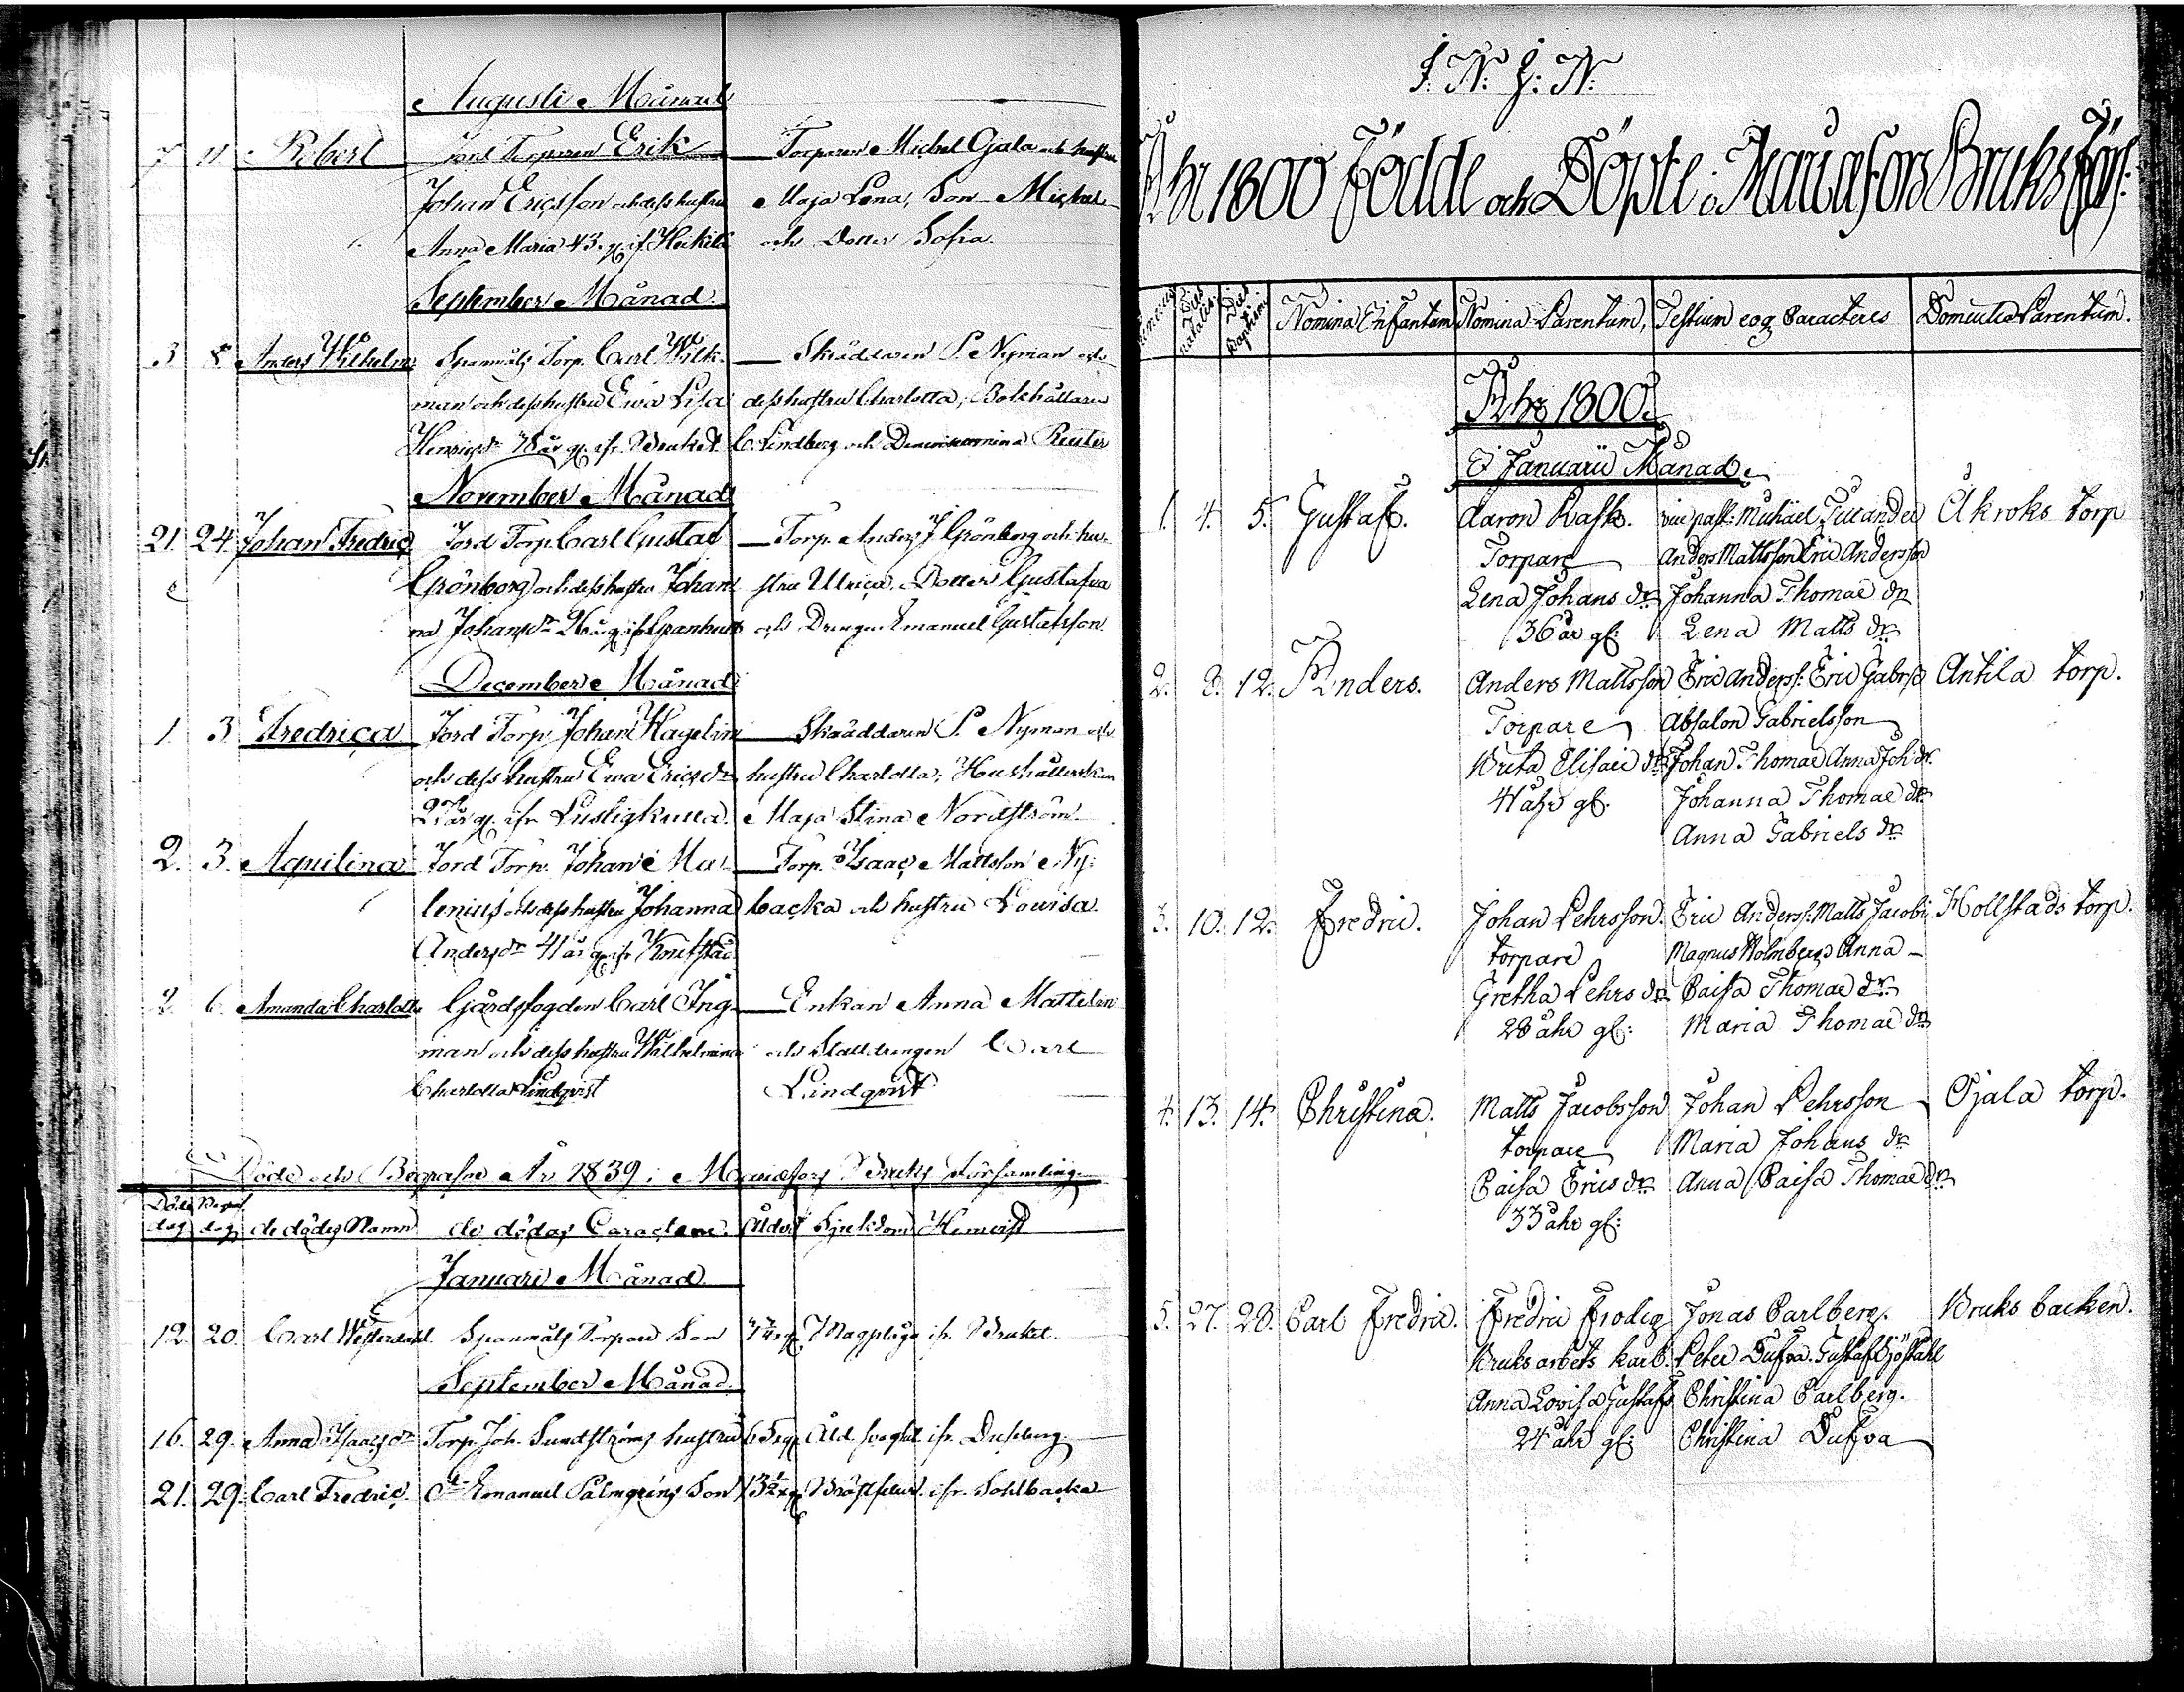 Augusti Månad
7 11 Robert Jord Torparen Erik Torparen Michel Ojala och hustru
Johan Ericsson och dess hustru Maja Lena, Son Michel
Anna Maria 43 gl ifr Heikilä och Dotter Sofia
September Månad
3 8 Anders Wilhelm Spanmåls Torp. Carl Wilk- Skräddaren P. Nyman och
man och dess hustru Ewa Lisa dess hustru Charlotta, Bokhållaren
Henrics dr år gl. ifr. Bruket C. Lindberg och Reuter
November Månad
21 24 Johan Fredric Jord Torp. Carl Gustaf Torp. Anders J Grönborg och hu-
Grönborg och dess hustru Johan- stru Ulrica, Dotter Gustafva
na Johans dr 26 år gl ifr och Drengen Emanuel Gustafsson
December Månad
1 3 Fredrica Jord Torp. Johan Hagelin Skräddaren P. Nyman och
och dess hustru Ewa Erics dr hustru Charlotta, Hushållerskan
27 år gl. ifr Lustigkulla Maja Stina Nordström
2. 3. Aquilina Jord Torp. Johan My- Torp. Isaac Mattsson Ny-
lenius och dess hustru Johanna backa och hustru Lovisa.
Anders dr 41 år gl ifr
2 6 Amanda Charlotta Gårdsfogden Carl Ing- Enkan Anna
man och dess hustru Wilhelmina och Stalldrengen Carl
Charlotta Lindqvist Lindqvist
Döde och Begrafne År 1839 i Mariæfors Bruks Församling
Döds dag Begraf. dag de dödas Namn de dödas Caractere. Ålder Sjukdom Hemvist
Januari Månad
12. 20. Carl Westerdahl Spanmåls Torpare Son Magplåga ifr. Bruket
September Månad
16. 29. Anna Isaacs dr Torp. Joh. Sundströms hustru 65 gl Ålderd. svaghet ifr.
21. 29. Carl Fredric. Emanuel Palmgrens Son Bröstfeber ifr. Sohlbacka
J. N. J. N.
Åhr 1800 Födde och Döpte i Mariæfors Bruks Förs:
Numerus Dies natalis Dies Baptismi Nomina Infantum Nomina Parentum, Testium eoq Caracteres Domicilia Parentum.
Åhr 1800.
I Januarii Månad
1. 4. 5. Gustaf. Aaron Rask. vice past: Michäel Åkroks torp
Torpare Anders Mattsson Eric Andersson
Lena Johans dr Johanna Thomæ dr
36 år gl: Lena Matts dr
2. 8. 12. Anders. Anders Mattsson Eric Anderss: Eric Gabrs: Antila torp.
Torpare Absalon Gabrielsson
Brita Elisæi dr Johan Thomæ Anna Joh dr
41 åhr gl. Johanna Thomæ dr
Anna Gabriels dr
3. 10. 12. Fredric. Johan Pehrsson. Eric Anderss: Matts Jacobi Hollstads torp.
torpare Magnus Holmberg Anna
Gretha Pehrs dr Caisa Thomæ dr
28 åhr gl: Maria Thomæ dr
4. 13. 14. Christina. Matts Jacobsson Johan Pehrsson Ojala torp.
torpare Maria Johans dr
Caisa Erics dr Anna Caisa Thomæ dr
33 åhr gl:
5. 27. 28. Carl Fredric. Fredric Frodig Jonas Carlberg. Bruks backen.
Bruks arbets karl. Peter Dufva. Gustaf Sjöståhl
Anna Lovisa Gustafs Christina Carlberg.
24 åhr gl: Christina Dufva